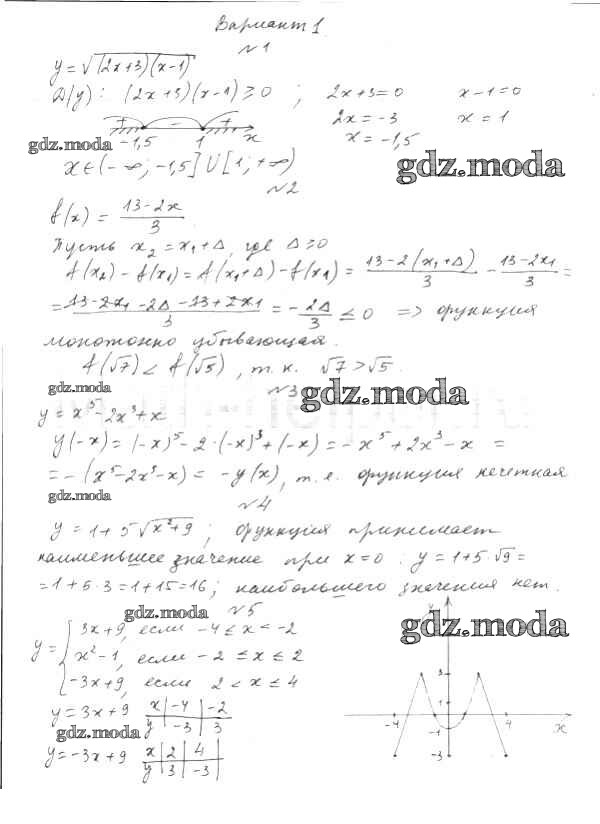 Вариант 1
№1
y = √(2x+3)(x-1)
D(y): (2x+3)(x-1) ≥ 0 ; 2x+3=0 x-1=0
2x = -3 x = 1
x = -1,5
+ - +
-1,5 1 x
gdz.moda
gdz.moda
x ∈ (-∞; -1,5] ∪ [1; +∞)
№2
f(x) = (13-2x)/3
Пусть x₂ = x₁+Δ, где Δ ≥ 0
f(x₂) - f(x₁) = f(x₁+Δ) - f(x₁) = (13-2(x₁+Δ))/3 - (13-2x₁)/3 =
= (13-2x₁-2Δ-13+2x₁)/3 = -2Δ/3 ≤ 0 => функция
монотонно убывающая.
f(√7) < f(√5), т.к. √7 > √5.
gdz.moda
№3
gdz.moda
y = x⁵-2x³+x
y(-x) = (-x)⁵-2·(-x)³+(-x) = -x⁵+2x³-x =
= -(x⁵-2x³-x) = -y(x), т.е. функция нечетная
gdz.moda
№4
y = 1+5√x²+9 ; функция принимает
наименьшее значение при x=0 : y = 1+5·√9 =
= 1+5·3 = 1+15 = 16 ; наибольшего значения нет.
gdz.moda
№5
gdz.moda
y = { 3x+9, если -4 ≤ x < -2
x²-1, если -2 ≤ x ≤ 2
-3x+9, если 2 < x ≤ 4
y = 3x+9 x | -4 | -2
y | -3 | 3
gdz.moda
y = -3x+9 x | 2 | 4
y | 3 | -3
y
3
1
-4 4 x
-1
-3